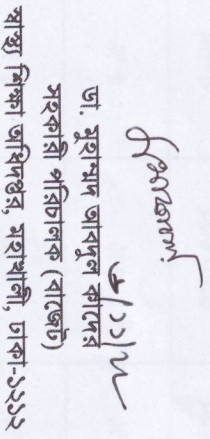 ডা. মুহাম্মদ আবদুল কাদের
সহকারী পরিচালক (বাজেট)
স্বাস্থ্য শিক্ষা অধিদপ্তর, মহাখালী, ঢাকা-১২১২